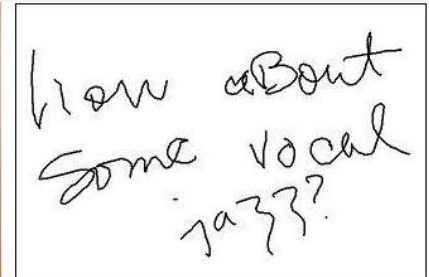 How aBout
some vocal
jazz?